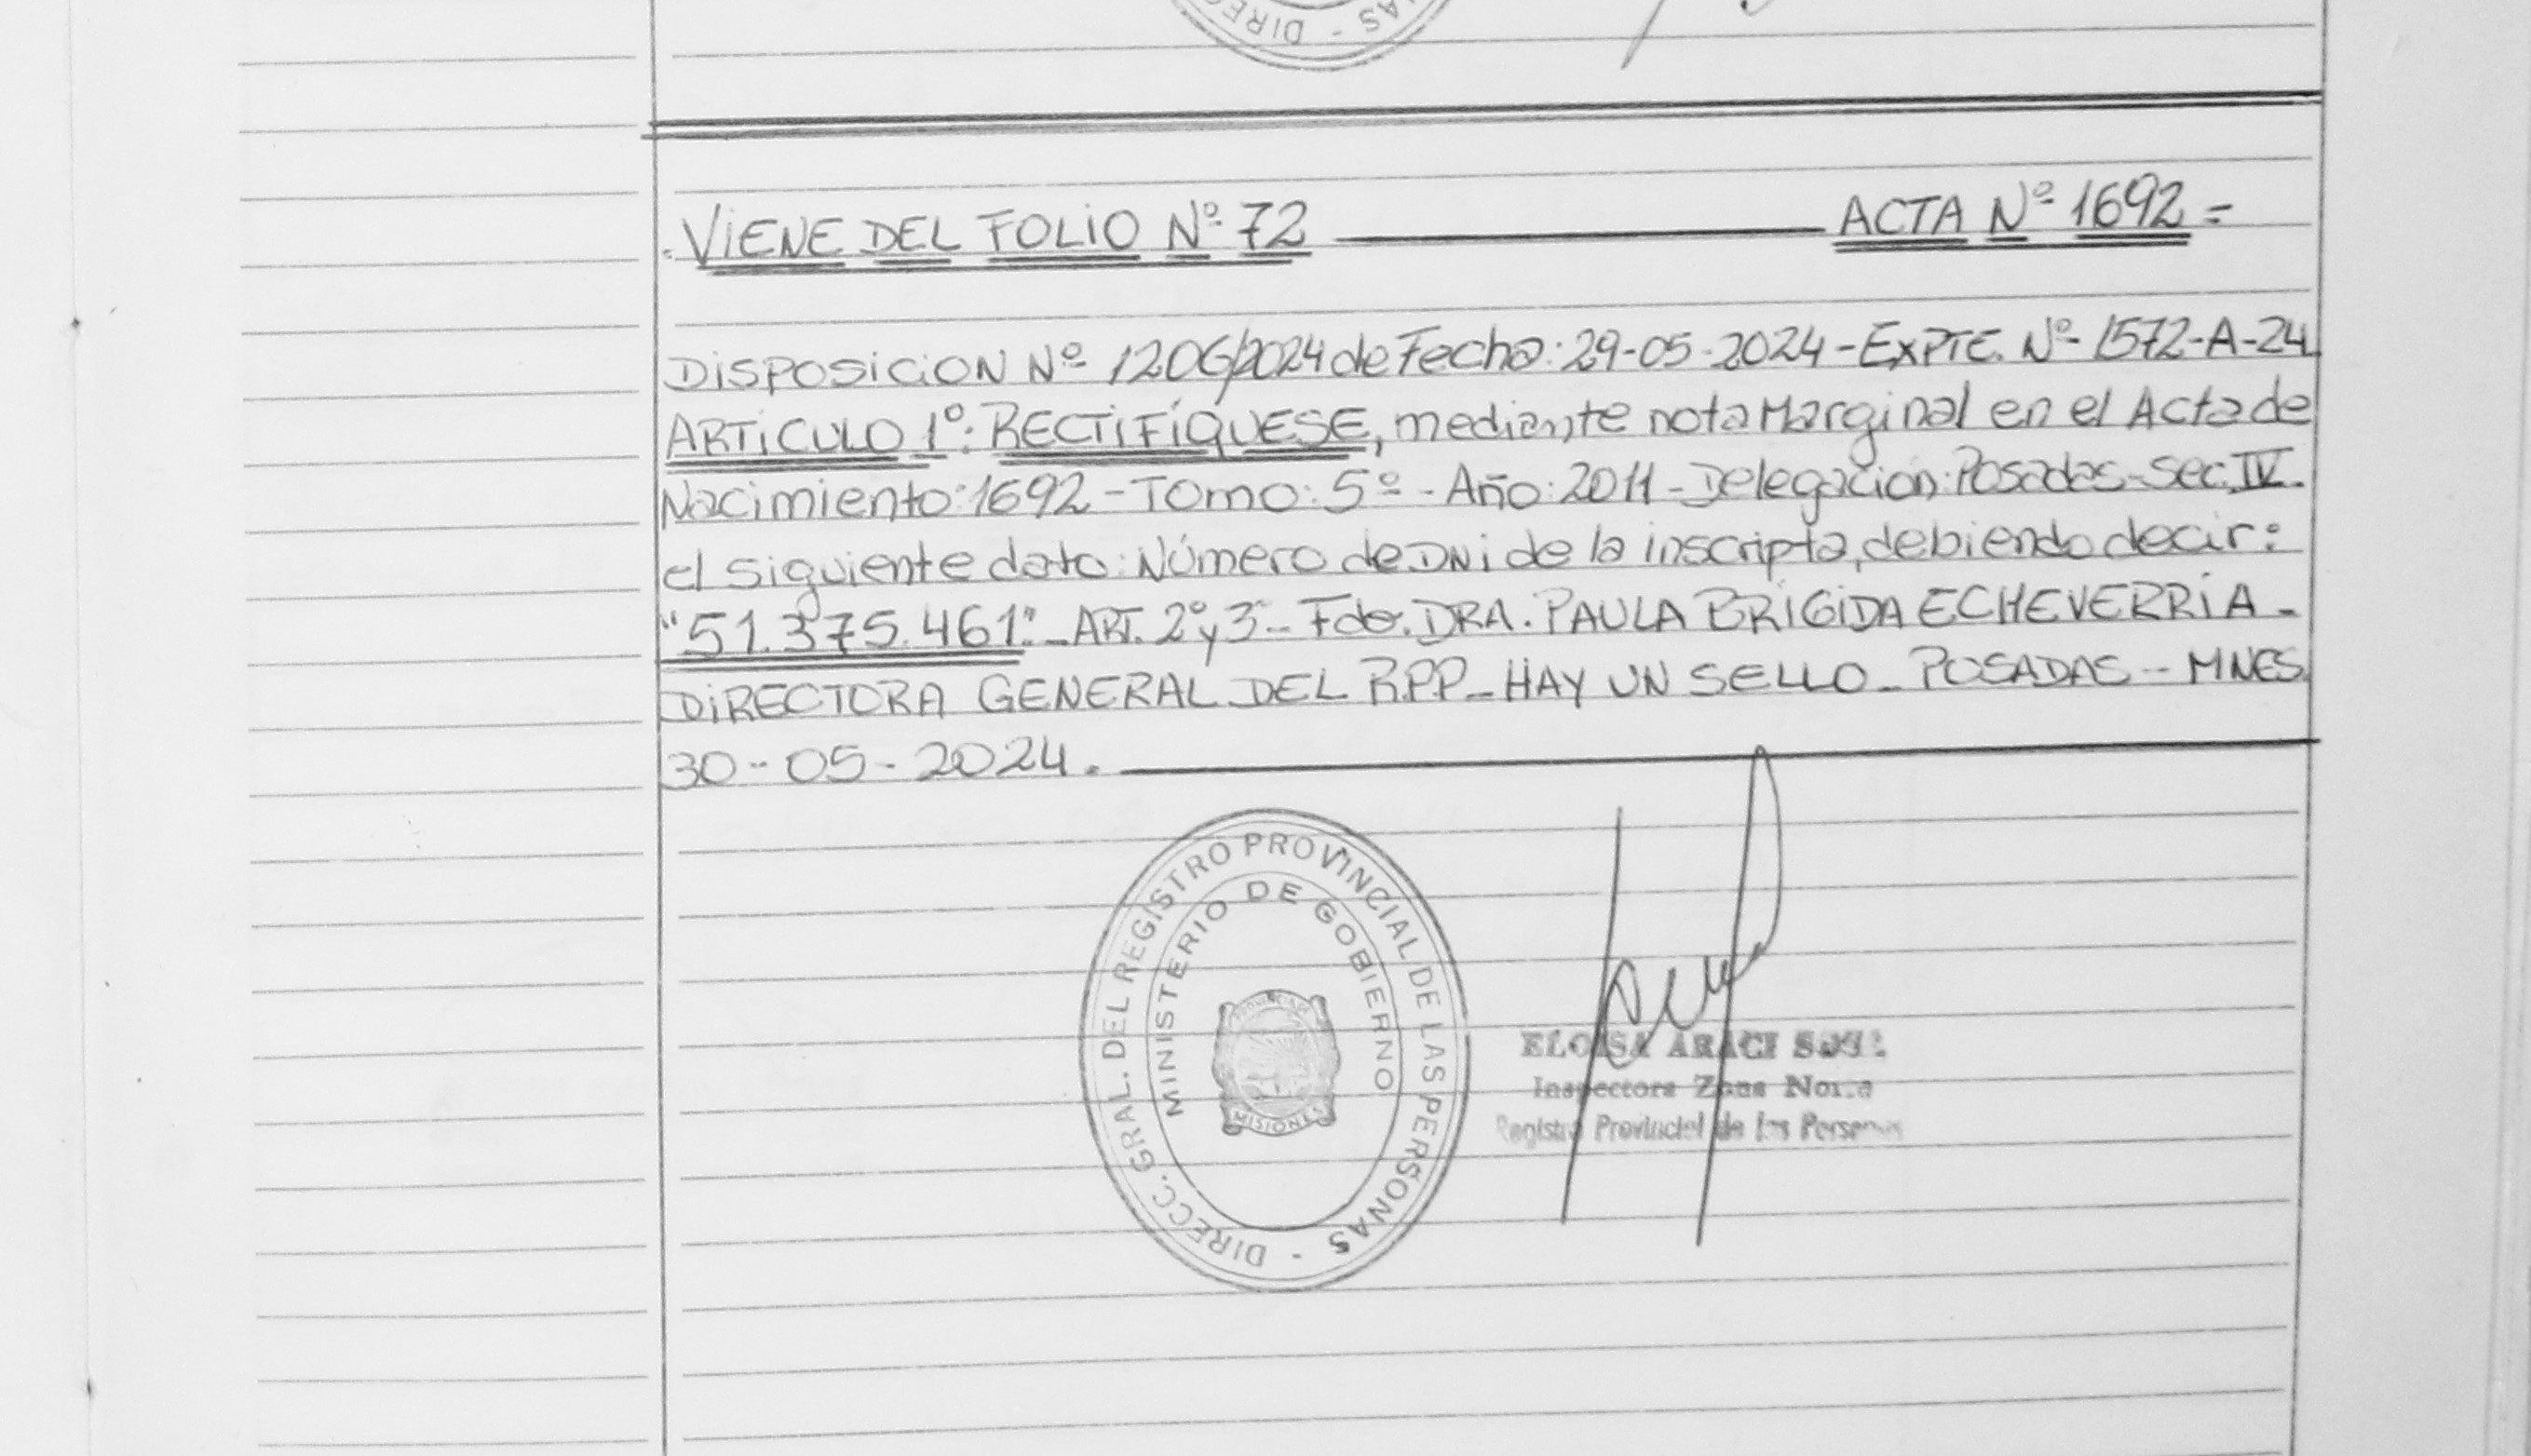 DIREC
- NAS
VIENE DEL FOLIO Nº 72 ACTA Nº 1692 =
DISPOSICION Nº 1206/2024 de Fecha: 29-05-2024 - EXPTE. Nº 1572-A-24
ARTICULO 1º: RECTIFÍQUESE, mediante nota Marginal en el Acta de
Nacimiento: 1692 - Tomo: 5º - Año: 2011 - Delegacion: Posadas - Sec. IV.
el siguiente dato: Número de DNi de la inscripta, debiendo decir:
"51.375.461". ART. 2º y 3º - Fdo. DRA. PAULA BRIGIDA ECHEVERRIA -
DIRECTORA GENERAL DEL R.P.P - HAY UN SELLO - POSADAS - MNES.
30 - 05 - 2024.
DIRECC. GRAL. DEL REGISTRO PROVINCIAL DE LAS PERSONAS -
MINISTERIO DE GOBIERNO
PROVINCIA DE
MISIONES
ELOISA ARACI
Inspectora Zona
Registro Provincial de las Personas